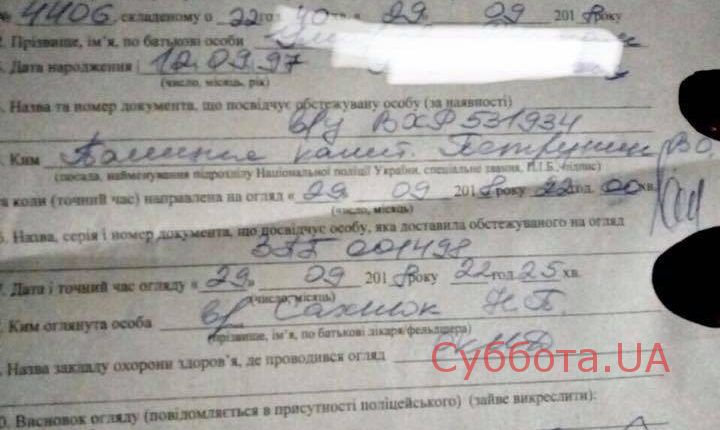 № 4406 складеному о 22 год 40 хв. « 29 09 2018 року
2. Прізвище, ім'я, по батькові особи
. Дата народження 12.09.97
(число, місяць, рік)
. Назва та номер документа, що посвідчує обстежувану особу (за наявності)
в/у ВХР 531934
. Ким капіт. В.О.
(посада, найменування підрозділу Національної поліції України, спеціальне звання, П.І.Б., підпис)
та коли (точний час) направлена на огляд « 29 09 2018 року 22 год. 00 хв.
(число, місяць)
. Назва, серія і номер документа, що посвідчує особу, яка доставила обстежуваного на огляд
001498
. Дата і точний час огляду « 29 » 09 2018 року 22 год 25 хв.
(число, місяць)
. Ким оглянута особа Н.П.
(прізвище, ім'я, по батькові лікаря/фельдшера)
. Назва закладу охорони здоров'я, де проводився огляд
Суббота.UA
0. Висновок огляду (повідомляється в присутності поліцейського) (зайве викреслити):